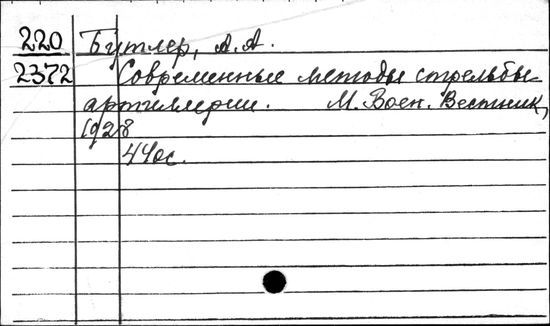 220 Бутлер, А. А.
2372 Современные методы стрельбы
артиллерии. М. Воен. Вестник,
1928
440с.